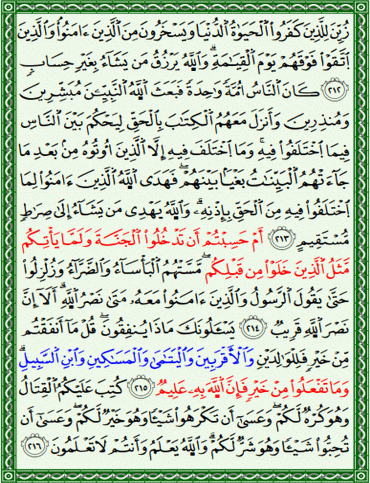 زُيِّنَ لِلَّذِينَ كَفَرُوا۟ ٱلْحَيَوٰةُ ٱلدُّنْيَا وَيَسْخَرُونَ مِنَ ٱلَّذِينَ ءَامَنُوا۟ ۘ وَٱلَّذِينَ
ٱتَّقَوْا۟ فَوْقَهُمْ يَوْمَ ٱلْقِيَٰمَةِ ۗ وَٱللَّهُ يَرْزُقُ مَن يَشَآءُ بِغَيْرِ حِسَابٍ
٢١٢ كَانَ ٱلنَّاسُ أُمَّةً وَٰحِدَةً فَبَعَثَ ٱللَّهُ ٱلنَّبِيِّـۧنَ مُبَشِّرِينَ
وَمُنذِرِينَ وَأَنزَلَ مَعَهُمُ ٱلْكِتَٰبَ بِٱلْحَقِّ لِيَحْكُمَ بَيْنَ ٱلنَّاسِ
فِيمَا ٱخْتَلَفُوا۟ فِيهِ ۚ وَمَا ٱخْتَلَفَ فِيهِ إِلَّا ٱلَّذِينَ أُوتُوهُ مِنۢ بَعْدِ مَا
جَآءَتْهُمُ ٱلْبَيِّنَٰتُ بَغْيًۢا بَيْنَهُمْ ۖ فَهَدَى ٱللَّهُ ٱلَّذِينَ ءَامَنُوا۟ لِمَا
ٱخْتَلَفُوا۟ فِيهِ مِنَ ٱلْحَقِّ بِإِذْنِهِۦ ۗ وَٱللَّهُ يَهْدِى مَن يَشَآءُ إِلَىٰ صِرَٰطٍ
مُّسْتَقِيمٍ ٢١٣ أَمْ حَسِبْتُمْ أَن تَدْخُلُوا۟ ٱلْجَنَّةَ وَلَمَّا يَأْتِكُم
مَّثَلُ ٱلَّذِينَ خَلَوْا۟ مِن قَبْلِكُم ۖ مَّسَّتْهُمُ ٱلْبَأْسَآءُ وَٱلضَّرَّآءُ وَزُلْزِلُوا۟
حَتَّىٰ يَقُولَ ٱلرَّسُولُ وَٱلَّذِينَ ءَامَنُوا۟ مَعَهُۥ مَتَىٰ نَصْرُ ٱللَّهِ ۗ أَلَآ إِنَّ
نَصْرَ ٱللَّهِ قَرِيبٌ ٢١٤ يَسْـَٔلُونَكَ مَاذَا يُنفِقُونَ ۖ قُلْ مَآ أَنفَقْتُم
مِّنْ خَيْرٍ فَلِلْوَٰلِدَيْنِ وَٱلْأَقْرَبِينَ وَٱلْيَتَٰمَىٰ وَٱلْمَسَٰكِينِ وَٱبْنِ ٱلسَّبِيلِ ۗ
وَمَا تَفْعَلُوا۟ مِنْ خَيْرٍ فَإِنَّ ٱللَّهَ بِهِۦ عَلِيمٌ ٢١٥ كُتِبَ عَلَيْكُمُ ٱلْقِتَالُ
وَهُوَ كُرْهٌ لَّكُمْ ۖ وَعَسَىٰٓ أَن تَكْرَهُوا۟ شَيْـًٔا وَهُوَ خَيْرٌ لَّكُمْ ۖ وَعَسَىٰٓ أَن
تُحِبُّوا۟ شَيْـًٔا وَهُوَ شَرٌّ لَّكُمْ ۗ وَٱللَّهُ يَعْلَمُ وَأَنتُمْ لَا تَعْلَمُونَ ٢١٦